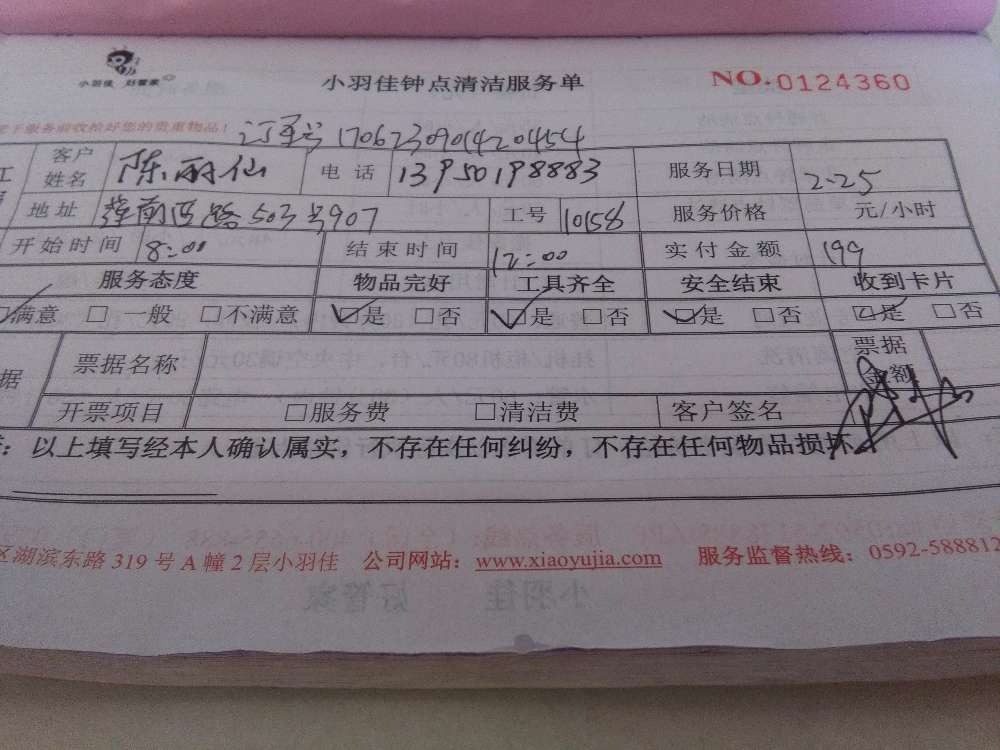 小羽佳 好管家 小羽佳钟点清洁服务单 NO.0124360
于服务前收拾好您的贵重物品! 订单号 170623090420454
客户姓名 陈丽仙 电话 13950198883 服务日期 2-25
地址 莲前西路503号907 工号 10158 服务价格 元/小时
开始时间 8:00 结束时间 12:00 实付金额 199
服务态度 物品完好 工具齐全 安全结束 收到卡片
满意 □ 一般 □不满意 ☑是 □否 ☑是 □否 ☑是 □否 ☑是 □否
据 票据名称 票据金额
开票项目 □服务费 □清洁费 客户签名
：以上填写经本人确认属实，不存在任何纠纷，不存在任何物品损坏
区湖滨东路 319 号 A 幢 2 层小羽佳 公司网站：www.xiaoyujia.com 服务监督热线：0592-588812